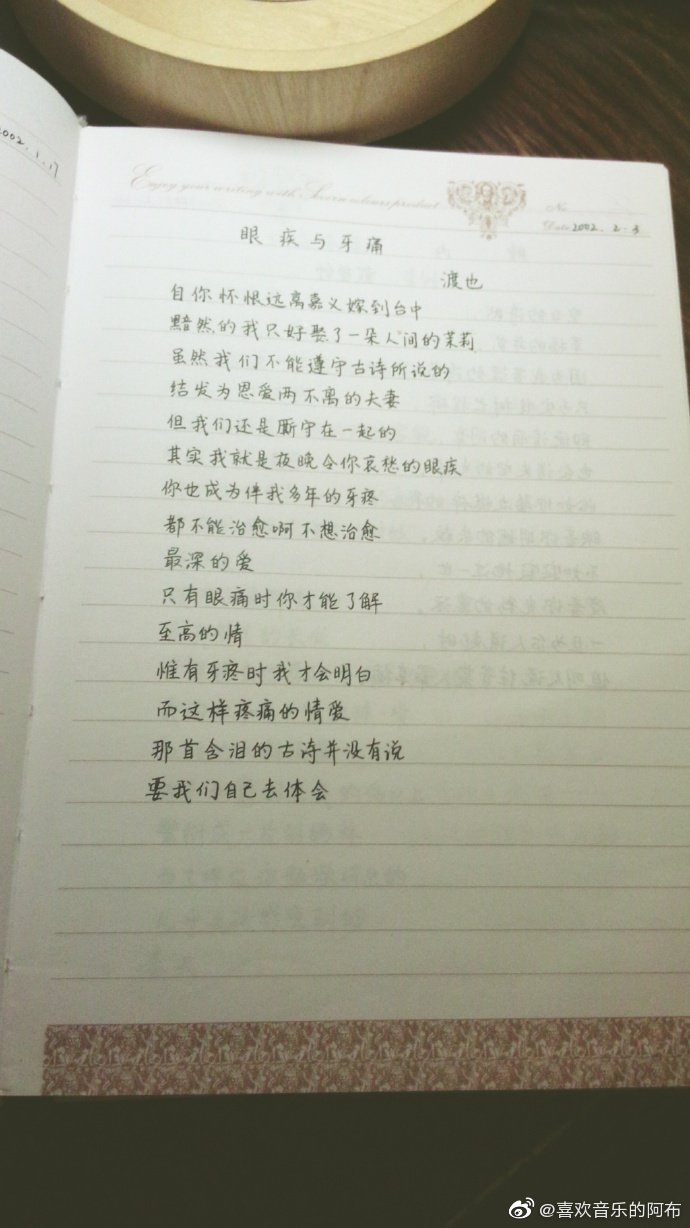 2002.1.17
Enjoy your writing with
product
No
Date 2002. 2. 3
眼疾与牙痛
渡也
自你怀恨远离嘉义嫁到台中
黯然的我只好娶了一朵人间的茉莉
虽然我们不能遵守古诗所说的
结发为恩爱两不离的夫妻
但我们还是厮守在一起的
其实我就是夜晚令你哀愁的眼疾
你也成为伴我多年的牙疼
都不能治愈啊不想治愈
最深的爱
只有眼痛时你才能了解
至高的情
惟有牙疼时我才会明白
而这样疼痛的情爱
那首含泪的古诗并没有说
要我们自己去体会
@喜欢音乐的阿布